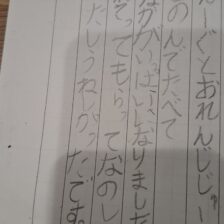 んーぐとおれんじじ
のんでたべて
なかがいっぱいになりました
ってもらってたのし
たしうれしかったです